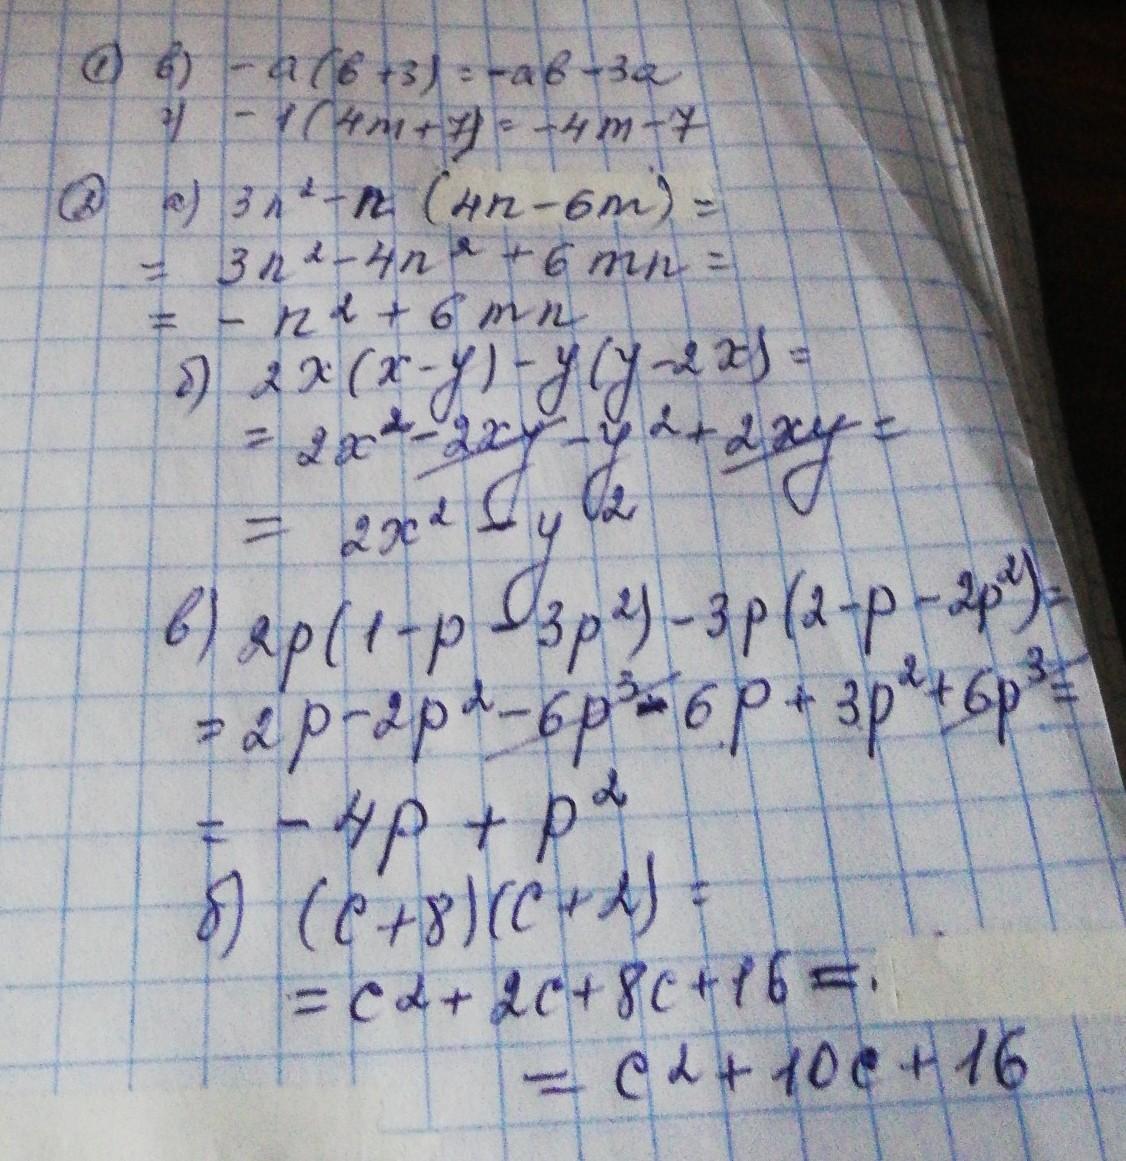 ① в) -a(b+3)=-ab-3a
г) -1(4m+7)=-4m-7
② а) 3n²-n(4n-6m)=
= 3n²-4n²+6mn=
= -n²+6mn
б) 2x(x-y)-y(y-2x)=
= 2x²-2xy-y²+2xy=
= 2x²-y²
в) 2p(1-p-3p²)-3p(2-p-2p²)=
=2p-2p²-6p³-6p+3p²+6p³=
= -4p+p²
б) (c+8)(c+2)=
=c2+2c+8c+16=.
= c2+10c+16